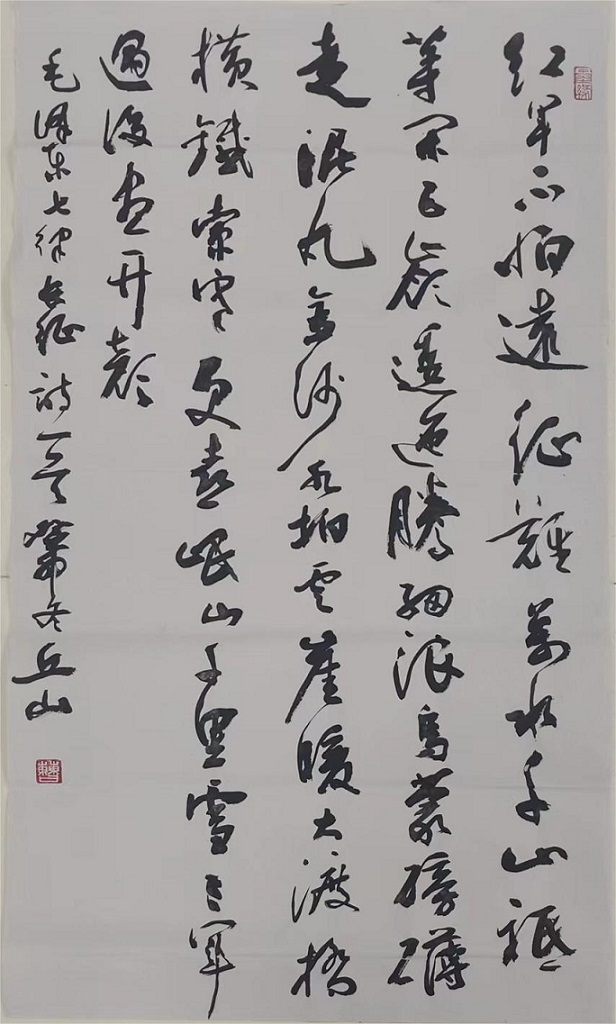 红军不怕遠征難萬水千山祗
等闲五嶺逶迤腾细浪乌蒙磅礴
走泥丸金沙水拍雲崖暖大渡橋
横鐵索寒更喜岷山千里雪三军
過後盡开颜
毛泽东七律长征诗一首冬丘山